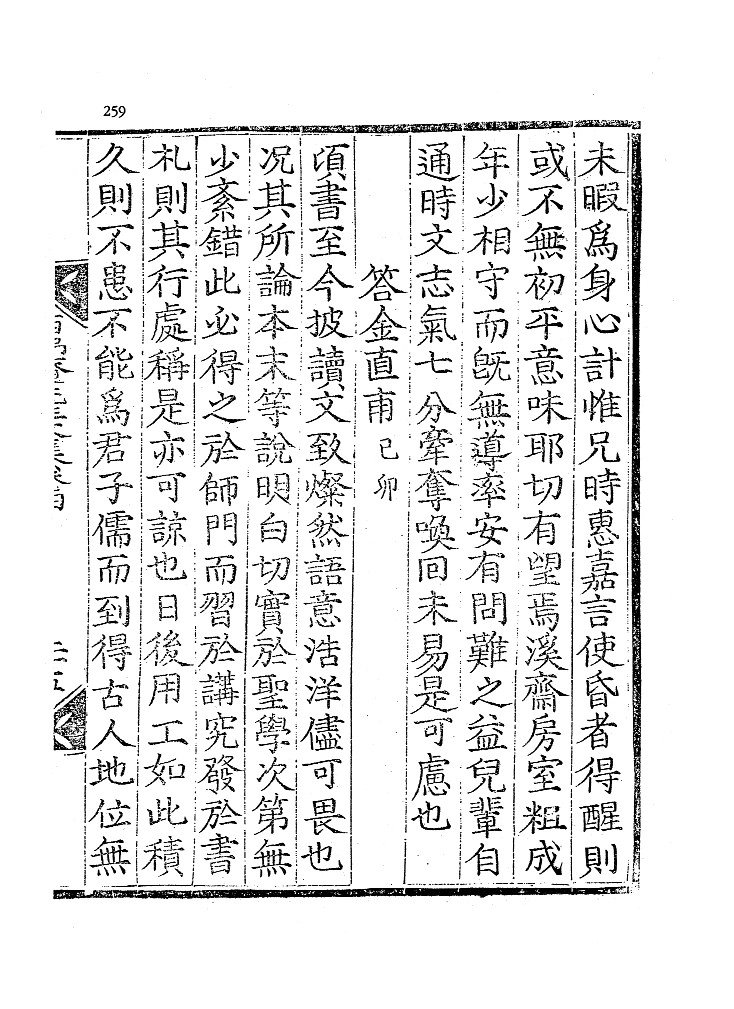 259
未暇爲身心計惟兄時惠嘉言使昏者得醒則
或不無初平意味耶切有望焉溪齋房室粗成
年少相守而旣無導率安有問難之益兒輩自
通時文志氣七分牽奪喚回未易是可慮也
答金直甫 己卯
頃書至今披讀文致燦然語意浩洋儘可畏也
况其所論本末等說明白切實於聖學次第無
少紊錯此必得之於師門而習於講究發於書
礼則其行處稱是亦可諒也日後用工如此積
久則不患不能爲君子儒而到得古人地位無
二五